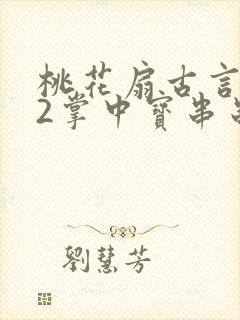 桃花扇古言
2掌中寶串
劉慧芳